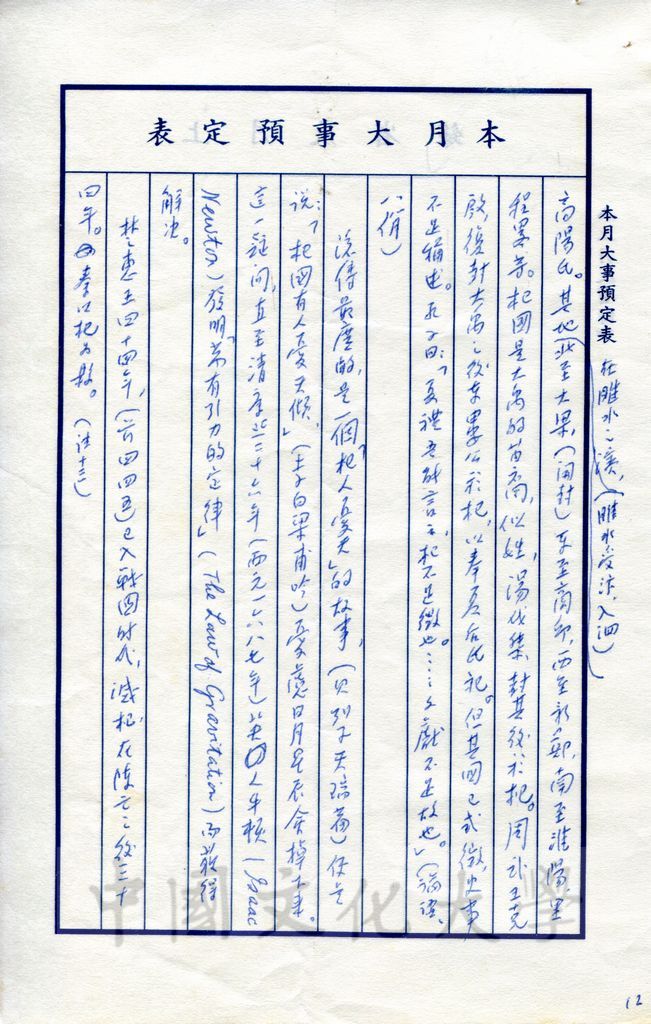 本月大事預定表
本月大事預定表
在睢水之濱，（睢水受汴，入泗）
高陽氏。其地北至大梁，（開封）東至商邱，西至新鄭，南至淮陽，
程累苦。杞國是大禹的苗裔，似姓，湯伐桀，封其後於杞。周武王克
殷，復封大禹之後東樓公於杞，以奉夏后氏祀。但其國已式微，史事
不足稱述。孔子曰：「夏禮吾能言之，杞不足徵也……文獻不足故也。」（論語、
八佾）
流傳最廣的，是一個「杞人憂天」的故事，（見列子天瑞篇）便是
說：「杞國有人憂天傾，」（李白梁甫吟）憂慮日月星辰會掉下來。
這一疑問，直至清康熙二十六年（西元一六八七年）英人牛頓（Isaac
Newton）發明「萬有引力的定律」（The Law of Gravitation）而獲得
解決。
楚惠王四十四年，（前四四五）已入戰國時代，滅杞，在陳亡之後三十
四年。秦以杞為縣。（註十三）
12
中國文化大學